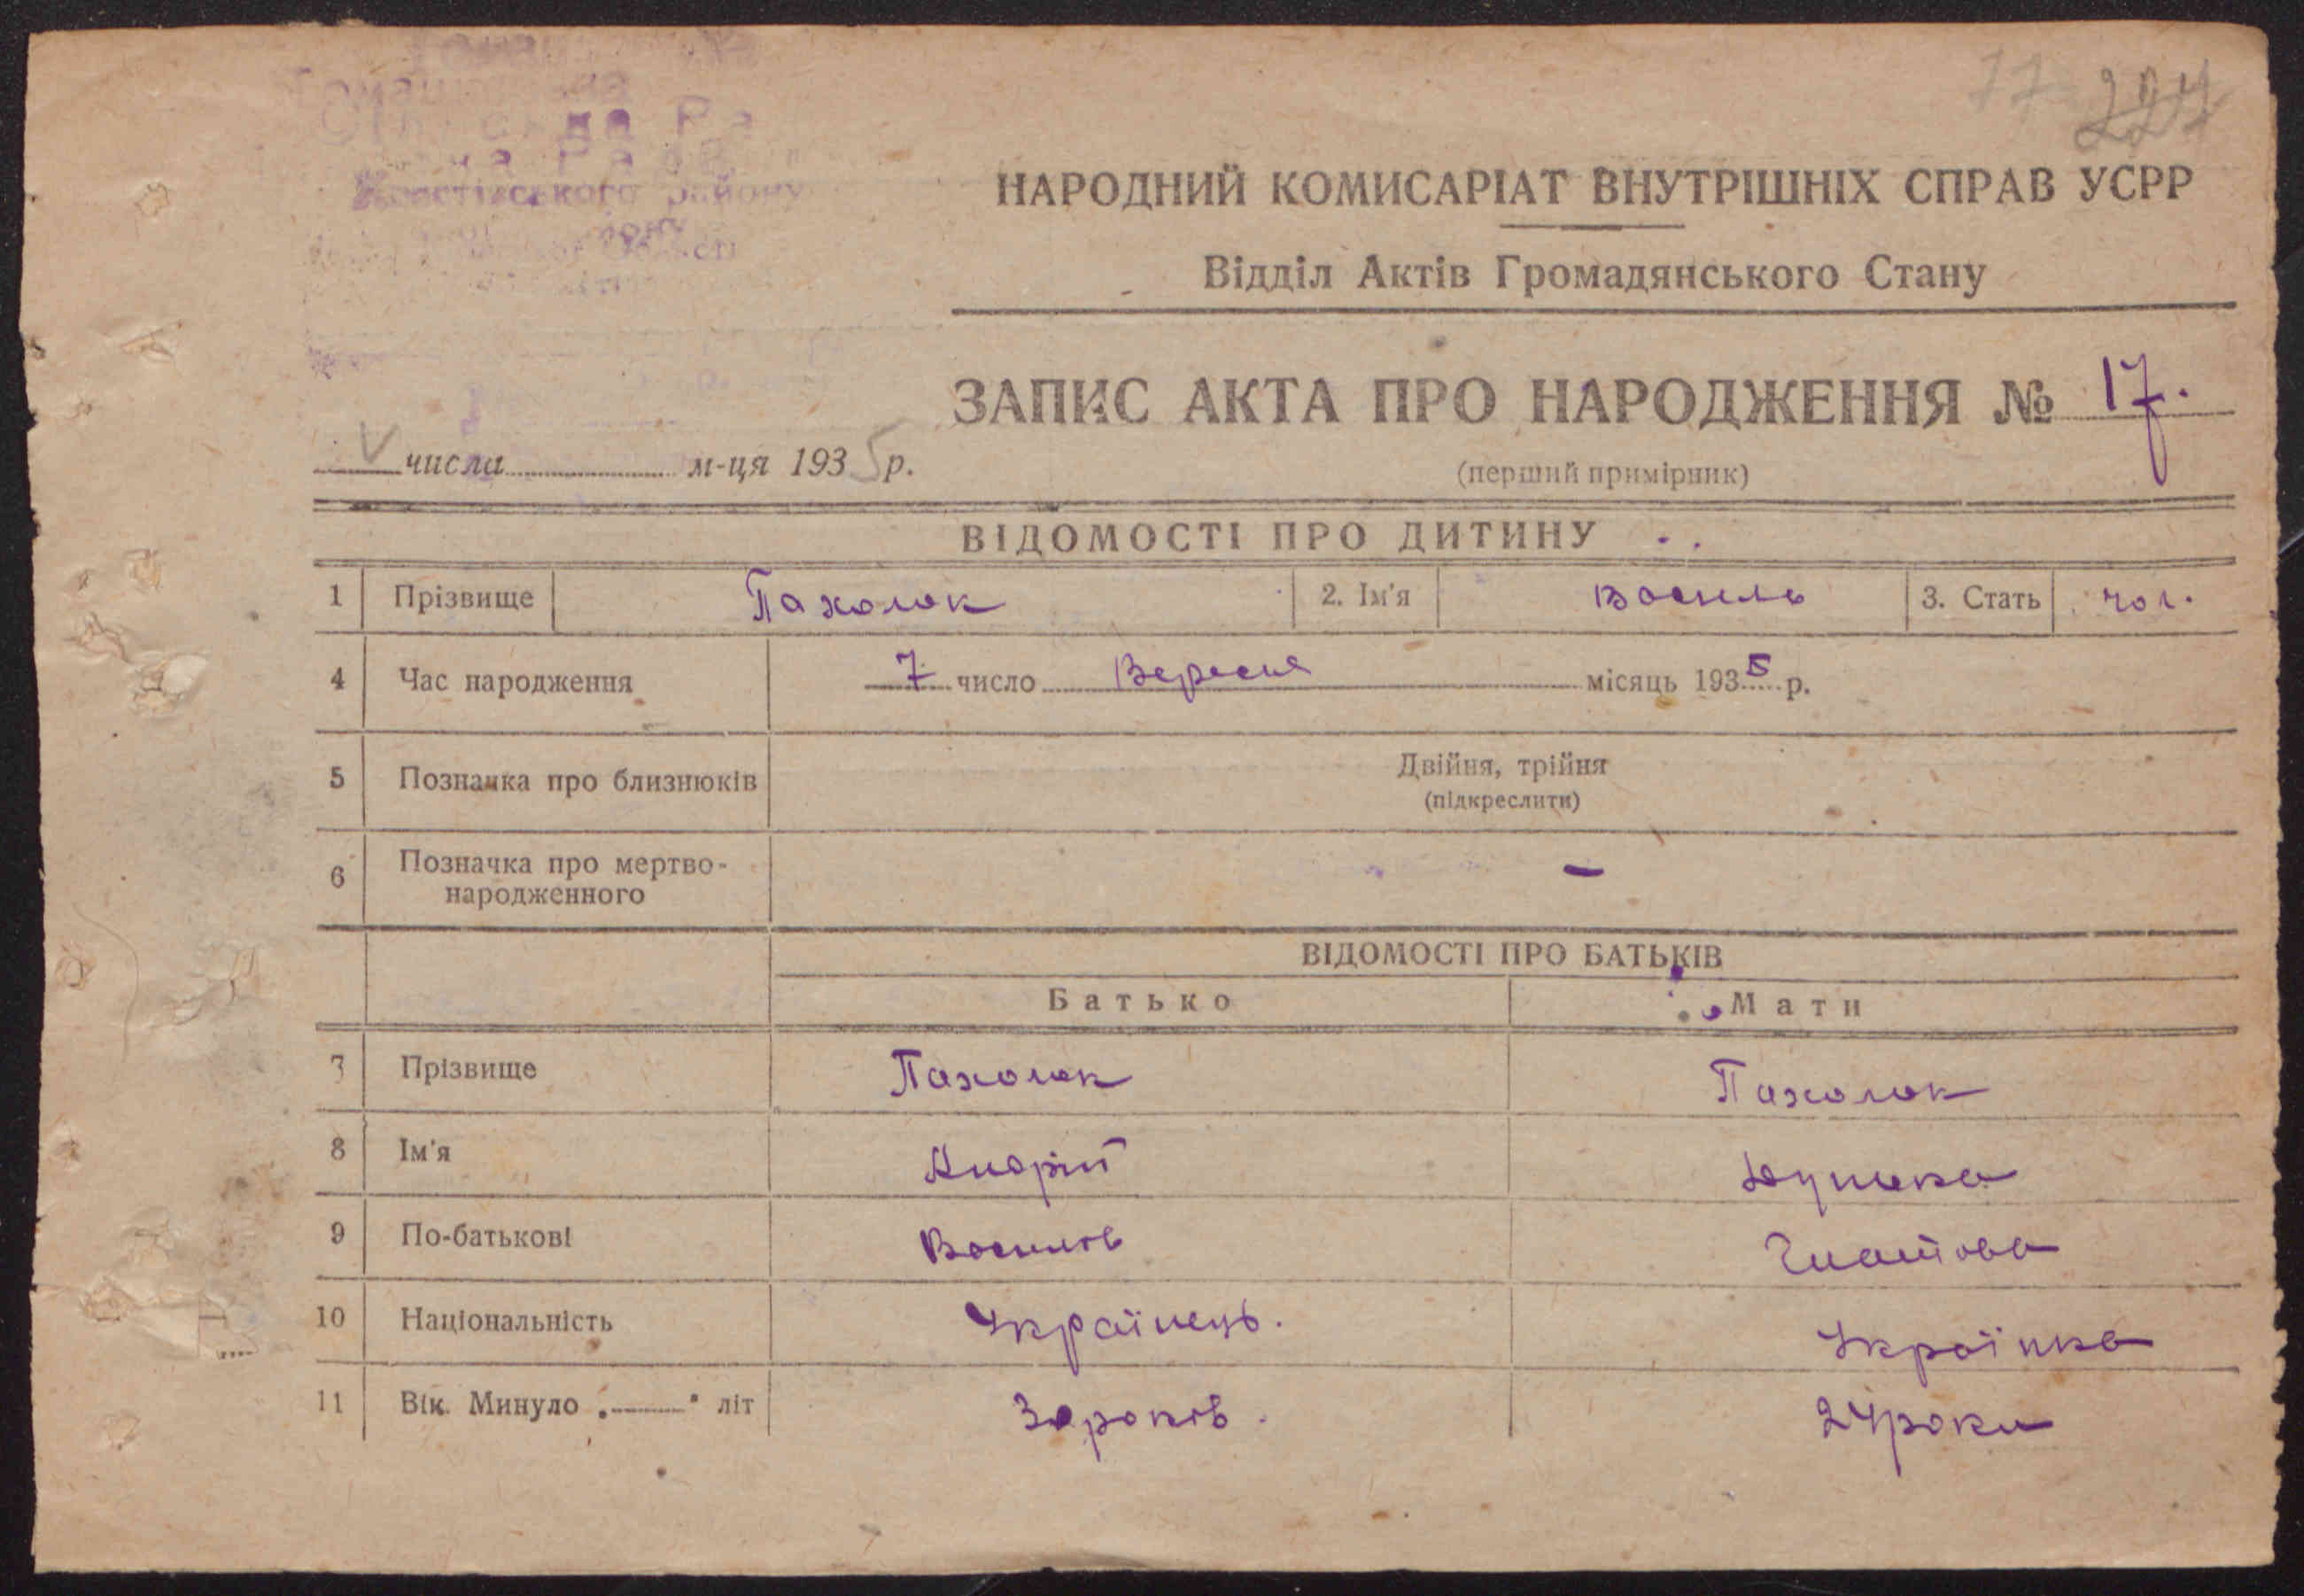 17 224
НАРОДНИЙ КОМИСАРІАТ ВНУТРІШНІХ СПРАВ УСРР
Відділ Актів Громадянського Стану
ЗАПИС АКТА ПРО НАРОДЖЕННЯ № 17.
V числа м-ця 1935 р.
(перший примірник)
ВІДОМОСТІ ПРО ДИТИНУ
1 Прізвище Пахолок 2. Ім'я Василь 3. Стать чол.
4 Час народження 7 число Вересня місяць 1935 р.
5 Позначка про близнюків Двійня, трійня
(підкреслити)
6 Позначка про мертво-
народженного –
ВІДОМОСТІ ПРО БАТЬКІВ
Батько Мати
7 Прізвище Пахолок Пахолок
8 Ім'я Андрій
9 По-батькові Василів Гнатова
10 Національність Українець. Українка
11 Вік. Минуло „——" літ 30 років. 24 роки
району